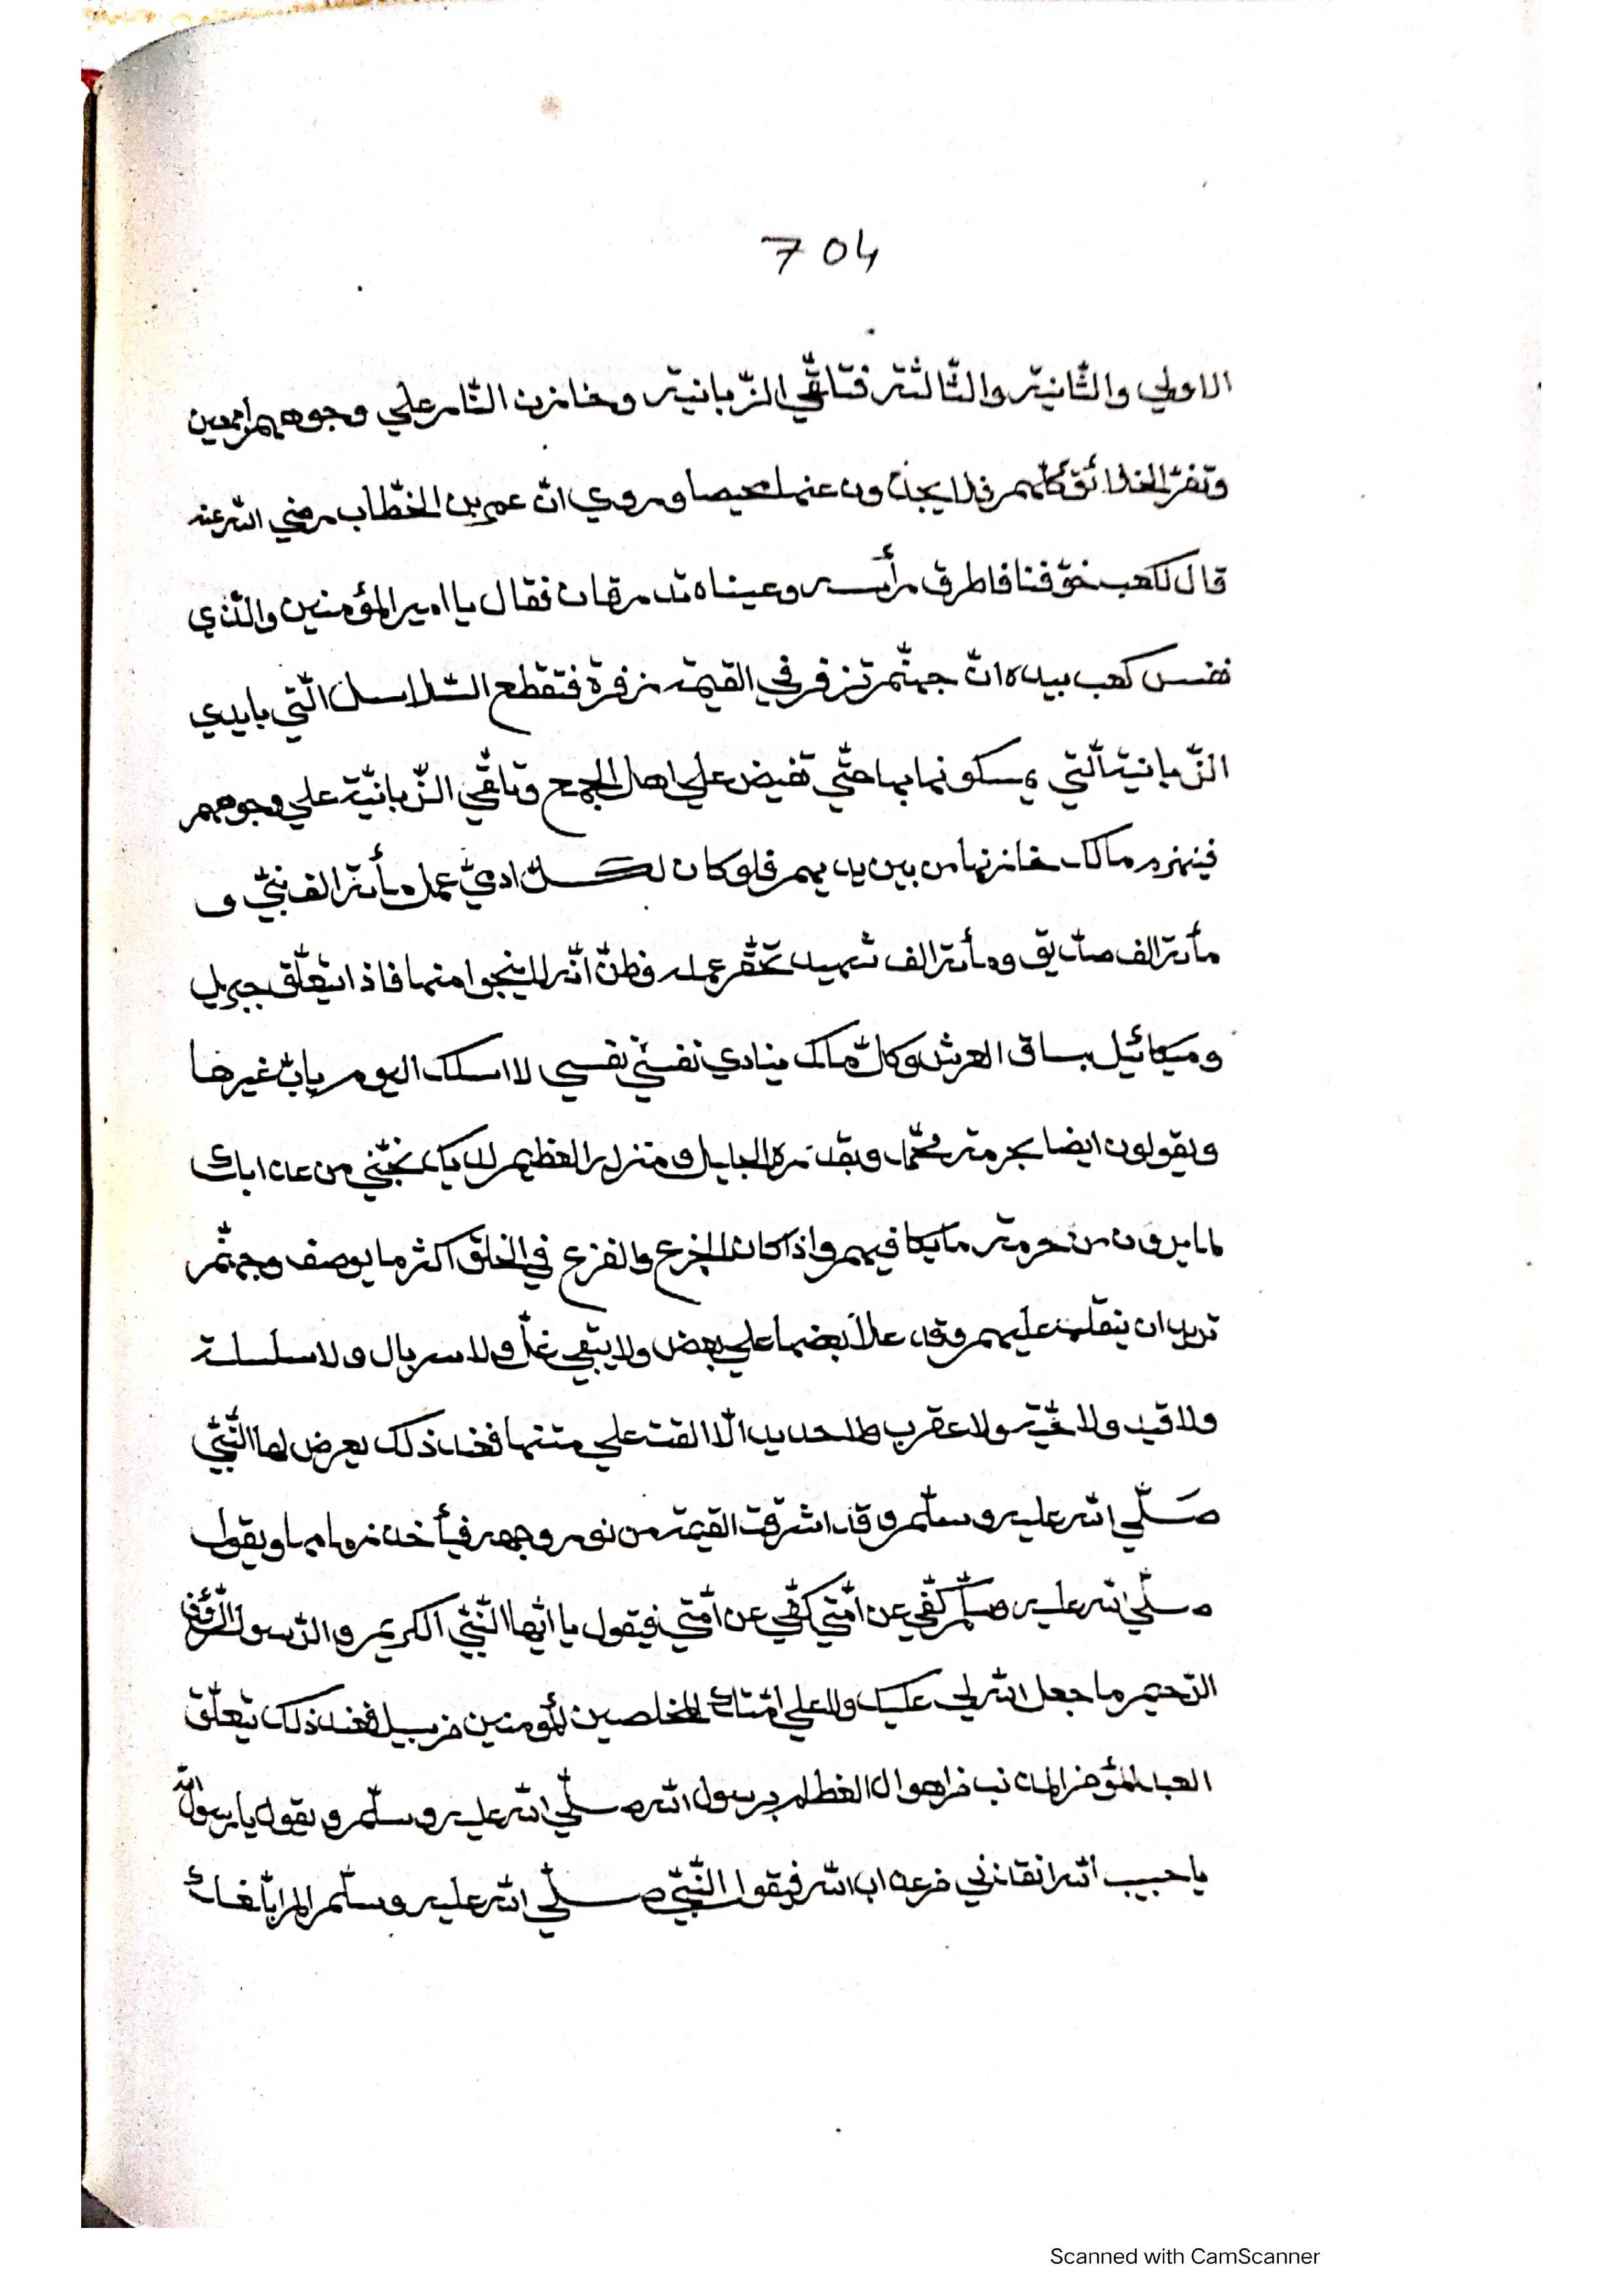 704
الاولي والثّانية والثّالثة فتلقّي الزّبانية وخازن النّار علي وجوههم أجمعين
وتفرّ الخلائق كلّهم فلا يجدون عنها محيصا وروي انّ عمر بن الخطّاب رضي الله عنه
قال لكعب خوّفنا فاطرق رأسه وعيناه تدمرقان فقال يا امير المؤمنين والّذي
نفس كعب بيده انّ جهنّم تزفر في القيمة زفرة فتقطع السّلاسل الّتي بايدي
الزّبانية الّتي يمسكونها بها حتّي تفيض علي اهل الجمع وتلقّي الزّبانيّة علي وجوههم
فينهزم مالك خازنها من بين يديهم فلو كان لكلّ ادميّ عمل مأية الف نبيّ و
مأية الف صدّيق ومأية الف شهيد تحقّر عمله وظنّ انّه لا ينجوا منها فاذا يتعلّق جبريل
وميكائيل بساق العرش وكلّ ملك ينادي نفسي نفسي لا اسلك اليوم يا ربّ غيرها
ويقولون ايضا بحرمة محمّد وبقدره الجليل ومنزله العظيم لديك نجّني من عذابك
لما يرون من حرمة ما يكا فيهم واذا كان الجزع والفزع في الخلق اكثر ما يوصف وجهنّم
تريد ان ينقلب عليهم وقد علا بعضها علي بعض ولا يبقي غلّ ولا سربال ولا سلسلة
ولا قيد ولا حيّة ولا عقرب ولا حديد الّا القت علي متنها فعند ذلك يعرض لها النّبيّ
صلّي الله عليه وسلّم وقد اشرقت القيمة من نور وجهه فيأخذ زمامها ويقول
صلّي الله عليه وسلّم كفّي عن امّتي كفّي عن امّتي فيقول يا ايّها النّبيّ الكريم والرّسول الرّؤف
الرّحيم ما جعل الله لي عليك ولا علي امّتك المخلصين المؤمنين من سبيل فعند ذلك يتعلّق
العبد المؤمن المذنب من اهوال العظام برسول الله صلّي الله عليه وسلّم ويقول يا رسول الله
يا حبيب الله انقذني من عذاب الله فيقول النّبيّ صلّي الله عليه وسلّم الم ابلّغك
Scanned with CamScanner